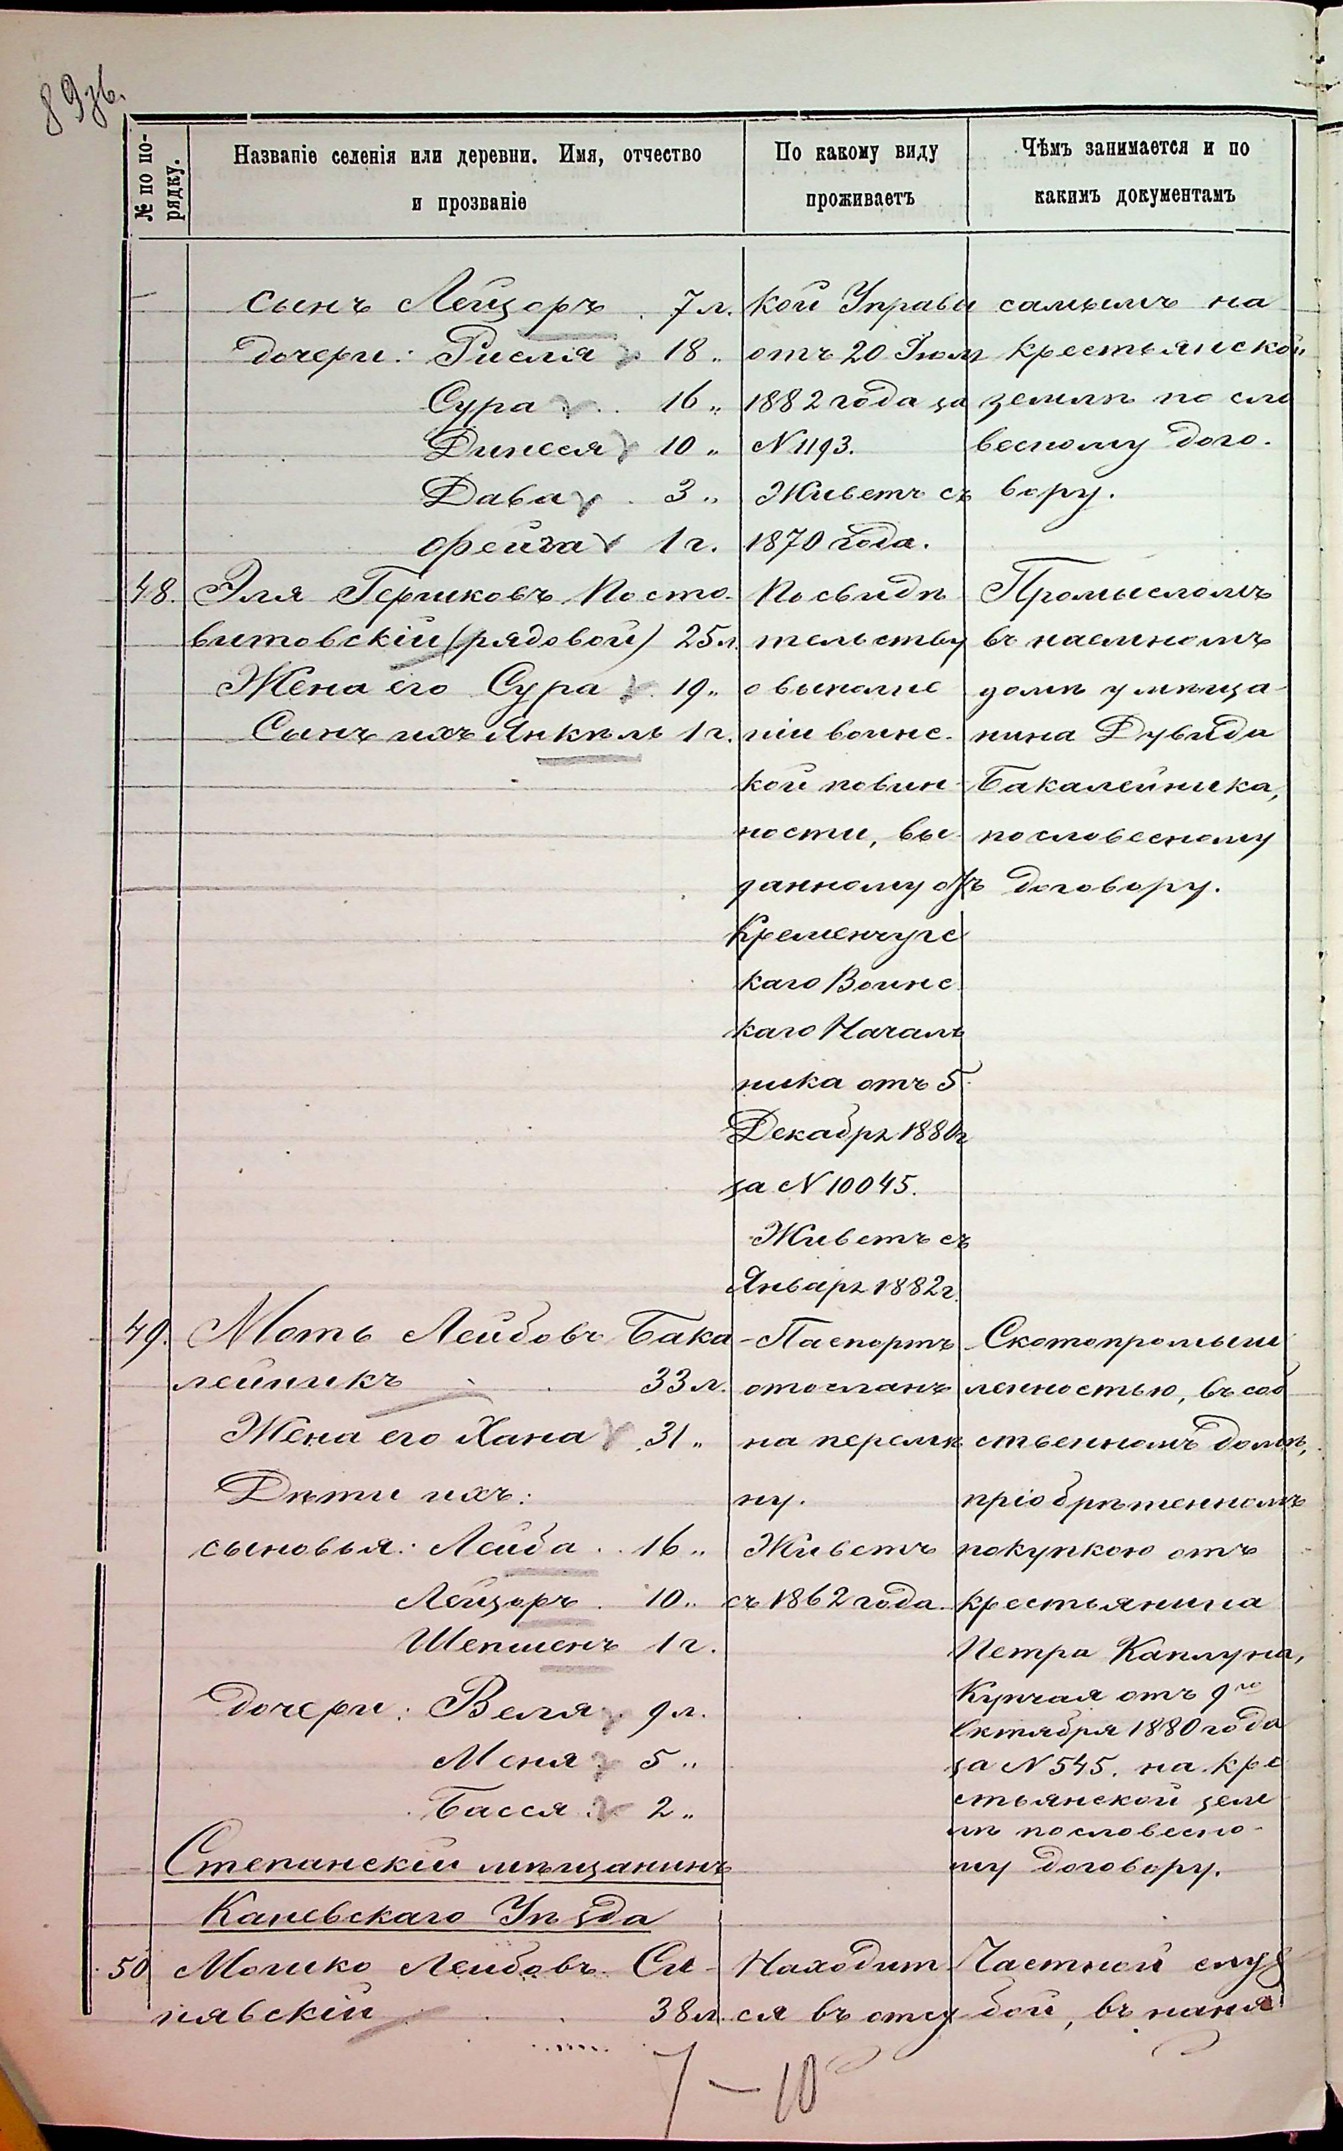 89 зв.
№ по по-
рядку.
Названіе селенія или деревни. Имя, отчество
и прозваніе
По какому виду
проживаетъ
Чѣмъ занимается и по
какимъ документамъ
сынъ Лейзоръ 7 л.
дочери: Рисля 18 "
Сура 16 "
Динеся 10 "
Дава 3 "
Фейга 1 г.
кой Управы
отъ 20 Іюля
1882 года за
№ 1193.
Живетъ съ
1870 года.
самымъ на
крестьянской
землѣ по сло
весному дого-
вору.
48. Эля Гершковъ Посто-
витовскій (рядовой) 25 л.
Жена его Сура 19 "
Сынъ ихъ Янкѣль 1 г.
По свидѣ
тельству
о выполне
ніи воинс-
кой повин-
ности, вы-
данному отъ
Кременчугс
каго Воинс
каго Началь
ника отъ 5
Декабря 1880 г
за № 10045.
Живетъ съ
Января 1882 г.
Промысломъ
въ наемномъ
домѣ у мѣща-
нина Дувида
Бакалейника,
по словесному
договору.
49. Моть Лейбовъ Бака-
лейникъ 33 л.
Жена его Хана 31 "
Дѣти ихъ:
сыновья: Лейба 16 "
Лейзоръ 10 "
Шепшенъ 1 г.
дочери: Веля 9 л.
Меня 5 "
Басся 2 "
Паспортъ
отосланъ
на перемѣ
ну.
Живетъ
съ 1862 года.
Скотопромыш
ленностью, въ соб
ственномъ домѣ,
пріобрѣтенномъ
покупкою отъ
крестьянина
Петра Каплуна,
Купчая отъ 9го
Октября 1880 года
за № 545. на кре
стьянской зем
лѣ по словесно-
му договору.
Степанскій мѣщанинъ
Каневскаго Уѣзда
50 Мошко Лейбовъ Си-
нявскій 38 л.
Находит
ся въ отсу
Частной служ
бой, въ наня
7 – 10